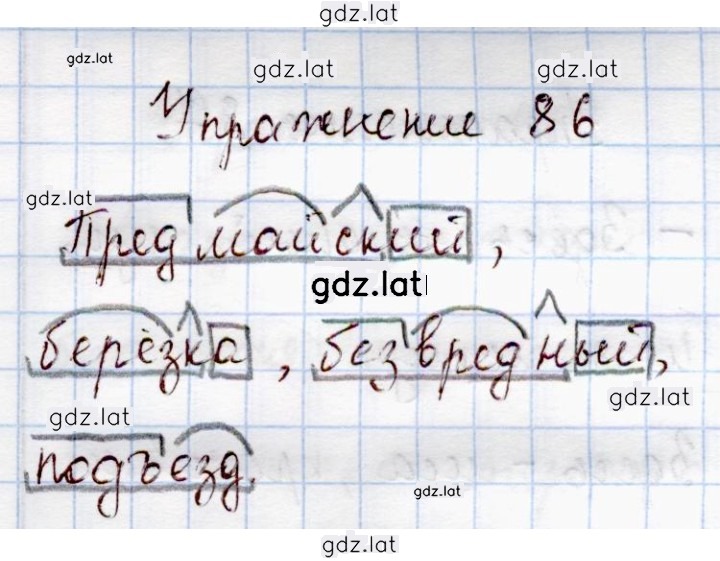 gdz.lat
gdz.lat
gdz.lat
gdz.lat
Упражнение 86
gdz.lat
Предмайский,
gdz.lat
берёзка, безвредный,
gdz.lat
gdz.lat
подъезд.
gdz.lat
gdz.lat